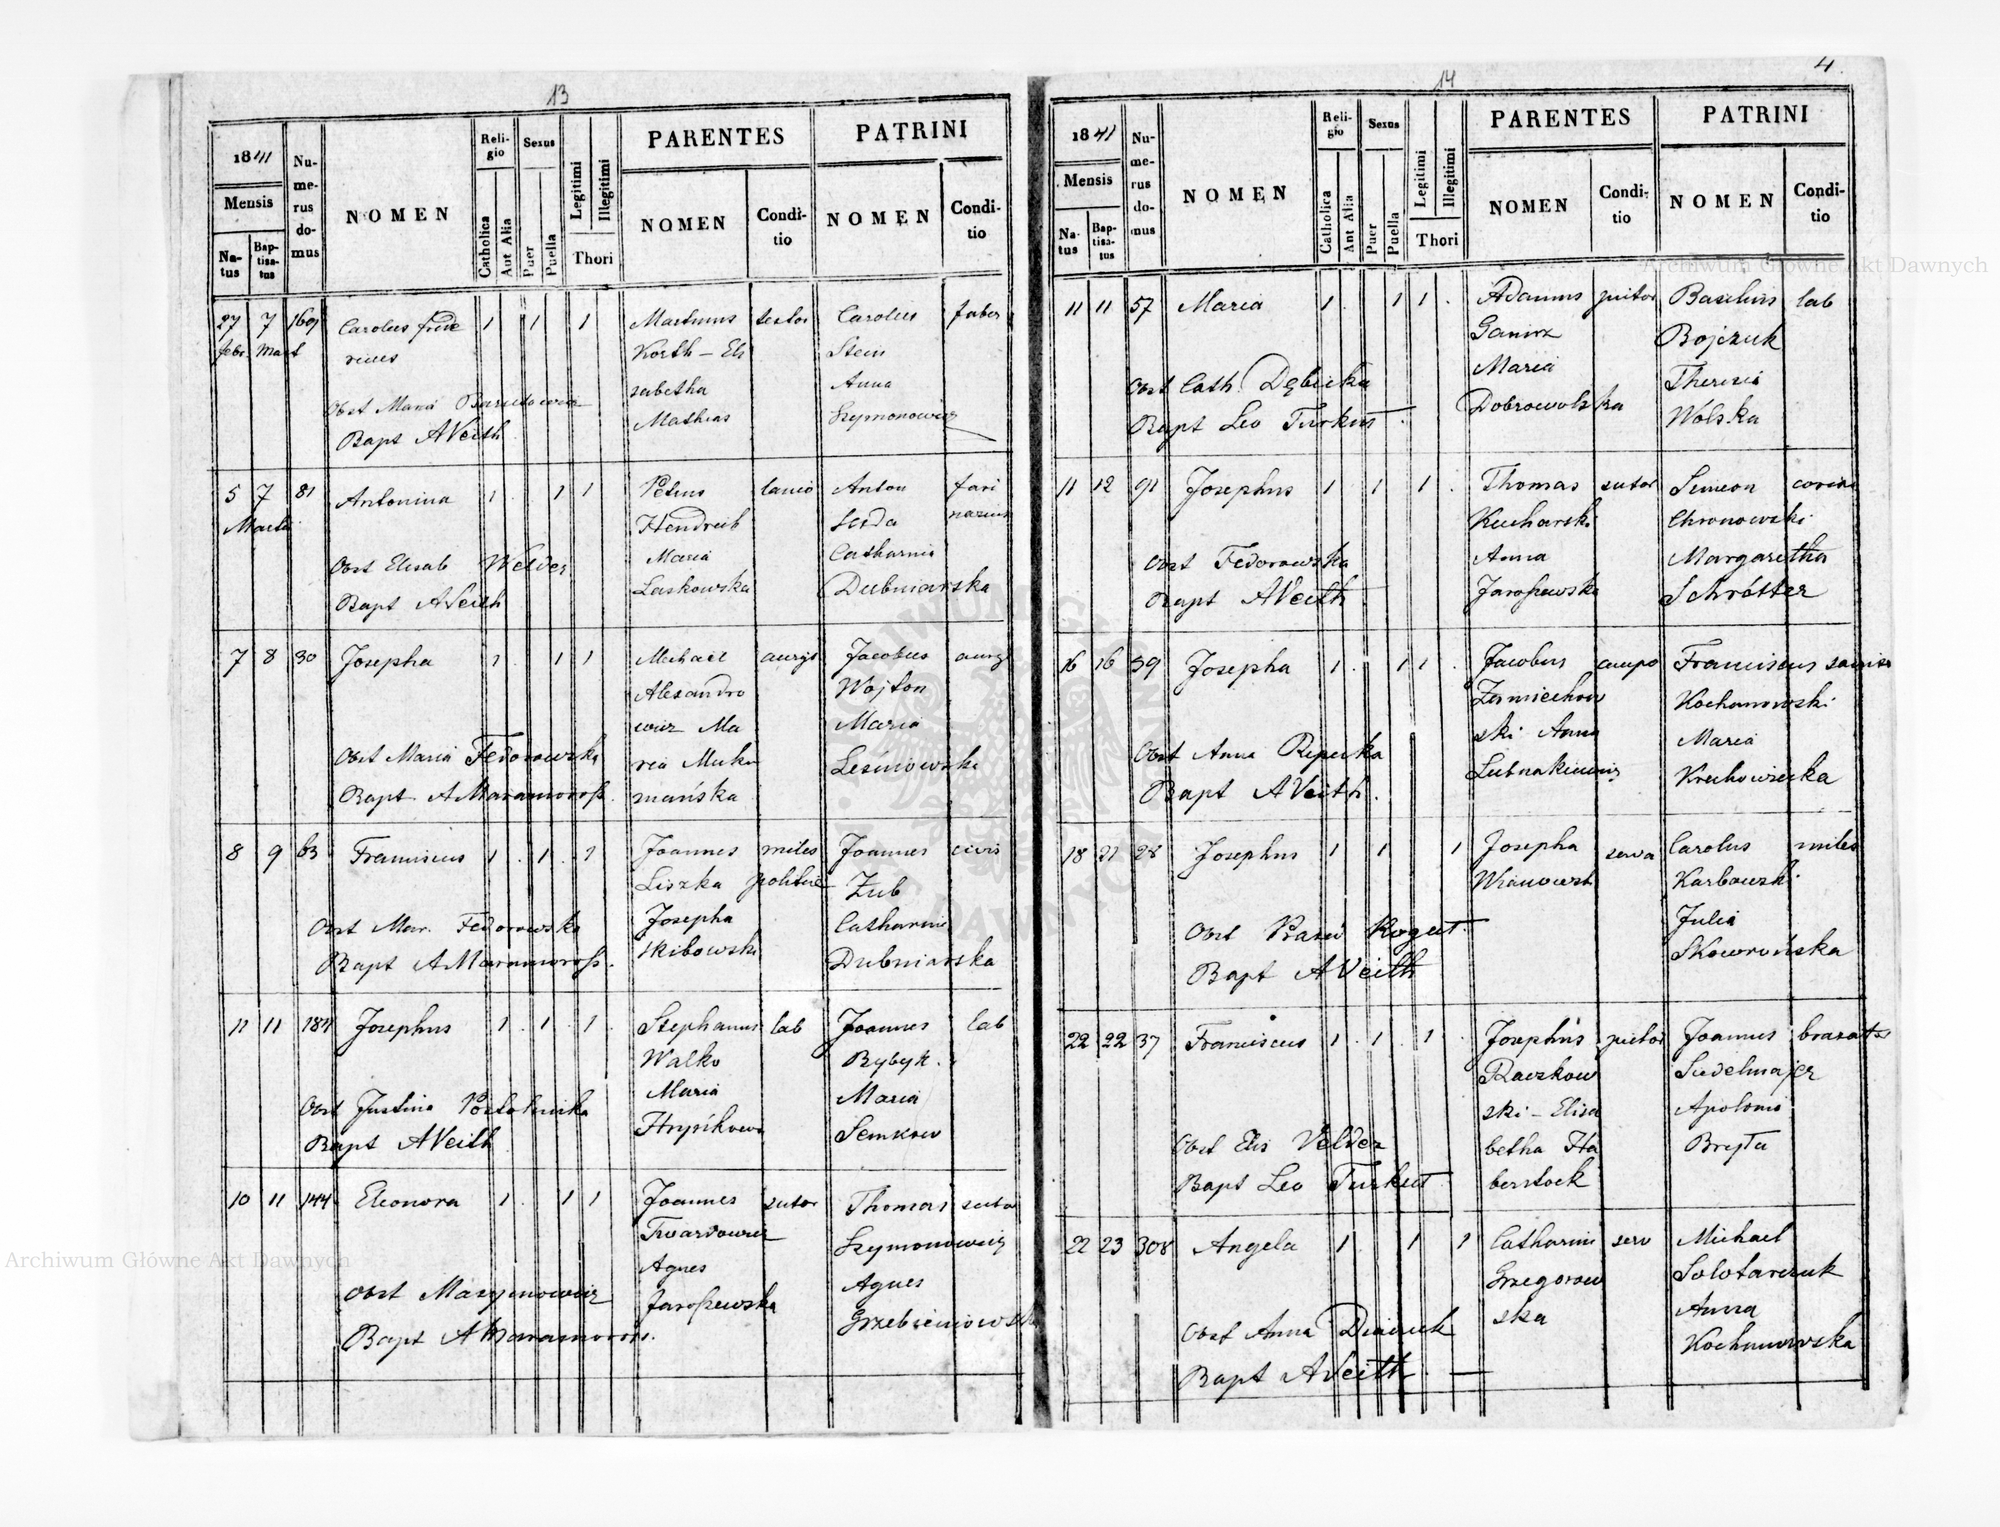 13
1841
Mensis
Natus
Baptisatus
Numerus domus
NOMEN
Religio
Catholica
Aut Alia
Sexus
Puer
Puella
Legitimi
Illegitimi
Thori
PARENTES
NOMEN
Conditio
PATRINI
NOMEN
Conditio
27 7 169 Carolus fride 1 1 1 Martinus textor Carolus faber
febr. Mart ricus Korth - Eli Stein
sabetha Anna
Obst Maria Mathias Szymonowicz
Bapt AVeith
5 7 81 Antonina 1 1 1 Petrus lanio Anton fari
Martii Hendreich narius
Maria Catharina
Obst Elisab Welder Laskowska Dubniarska
Bapt AVeith
7 8 30 Josepha 1 1 1 Michael auriga Jacobus auriga
Alexandro Wojton
wicz Ma Maria
Obst Maria Fedorowska ria
Bapt. AMaramoross. mańska
8 9 63 Franciscus 1 1 1 Joannes miles Joannes civis
Liszka Zub
Obst Mar. Fedorowska Josepha Catharina
Bapt AMaramoross. Skibowska Dubniarska
11 11 187 Josephus 1 1 1 Stephanus lab Joannes lab
Walko Bybyk.
Obst Justina Maria Maria
Bapt AVeith Semkow
10 11 144 Eleonora 1 1 1 Joannes sutor Thomas sutor
Twardowicz Szymonowicz
Obst Marynowicz Agnes Agnes
Bapt AMaramoross. Jaroszewska Grzebieniowska
14
4.
1841
Mensis
Natus
Baptisatus
Numerus domus
NOMEN
Religio
Catholica
Aut Alia
Sexus
Puer
Puella
Legitimi
Illegitimi
Thori
PARENTES
NOMEN
Conditio
PATRINI
NOMEN
Conditio
11 11 57 Maria 1 1 1 Adamus Basilius lab
Bojczuk
Maria Theresia
Obst Cath. Dębicka Dobrowolska Wolska
Bapt Leo Turkut
11 12 91 Josephus 1 1 1 Thomas sutor Simeon
Kucharski Chronowski
Obst Fedorowska Anna Margaretha
Bapt AVeith Jaroszewska Schrötter
16 16 39 Josepha 1 1 1 Jacobus caupo Franciscus
Zamiechow Kochanowski
Obst Anna Ripecka ski Anna Maria
Bapt AVeith. Krechowiecka
18 21 28 Josephus 1 1 1 Josepha serva Carolus miles
Karbowski
Obst Kogut Julia
Bapt AVeith Skowrońska
22 22 37 Franciscus 1 1 1 Josephus Joannes
Raczkow Siedelmajer
ski - Elisa Apolonia
Obst Elis Velder betha Ha
Bapt Leo Turkut berstock
22 23 308 Angela 1 1 1 Catharina serv Michael
Grzegorow Solotarczuk
Obst Anna ska Anna
Bapt AVeith Kochanowska
Archiwum Główne Akt Dawnych
Archiwum Główne Akt Dawnych